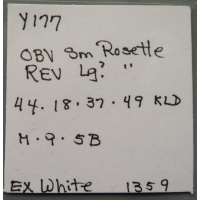 Y177
OBV Sm Rosette
REV Lg? "
44.18.37.49 KLD
M.9.5B
EX White 1359